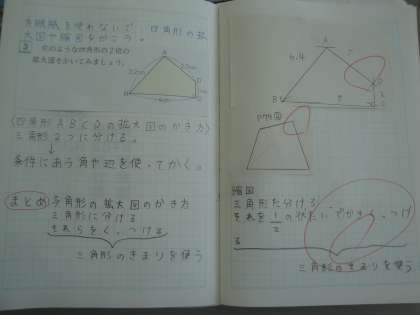 方眼紙を使わないで、四角形の拡
大図や縮図をかこう。
3 右のような四角形の2倍の
拡大図をかいてみましょう。
A
D
B
C
(四角形ABCDの拡大図のかき方)
三角形2つに分ける。
↓
条件にあう角や辺を使ってかく。
まとめ 多角形の拡大図のかき方
三角形に分ける
それらをくっつける
三角形のきまりを使う
A
6.4
D
B
C
P79 4
縮図
三角形に分ける
それを1/2の
くっつけ
る
三角形のきまりを使う